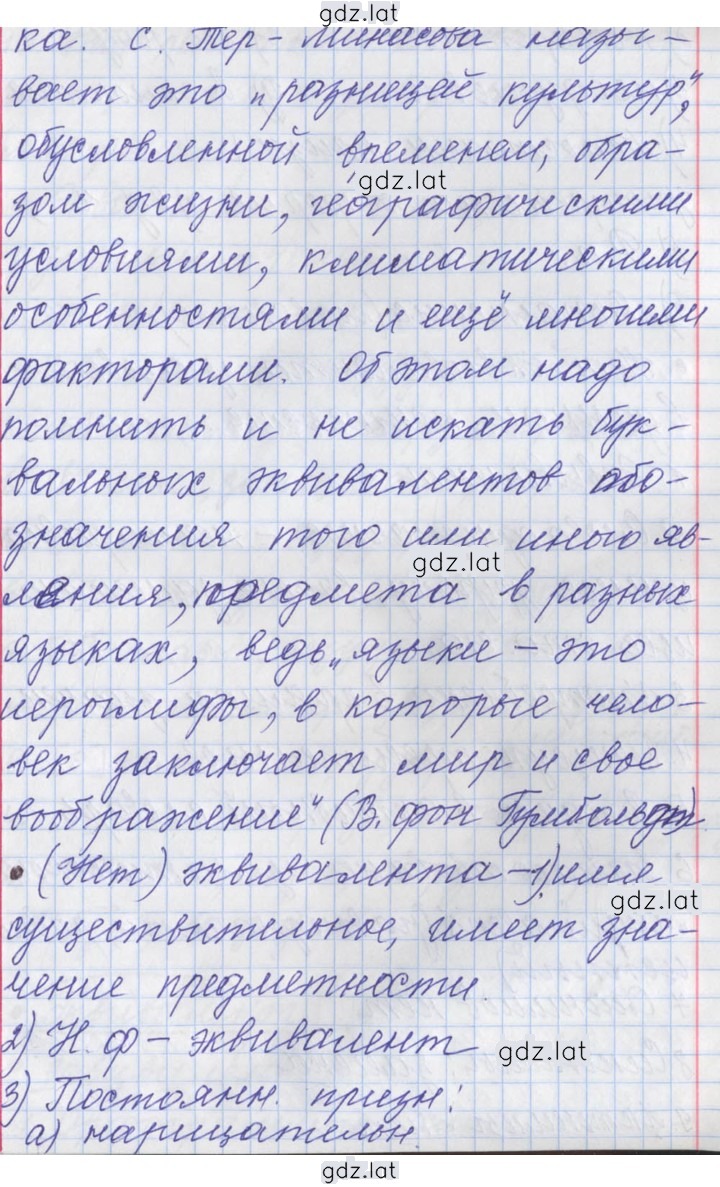 gdz.lat
ка. С. Тер-Минасова назы-
вает это „разницей культур",
обусловленной временем, обра-
gdz.lat
зом жизни, географическими
условиями, климатическими
особенностями и ещё многими
факторами. Об этом надо
помнить и не искать бук-
вальных эквивалентов обо-
значения того или иного яв-
gdz.lat
ления, предмета в разных
языках, ведь „языки – это
иероглифы, в которые чело-
век заключает мир и свое
воображение" (В. фон Гумбольдт)
• (Нет) эквивалента – 1) имя
gdz.lat
существительное, имеет зна-
чение предметности.
2) Н. ф – эквивалент
gdz.lat
3) Постоянн. призн:
а) нарицательн.
gdz.lat